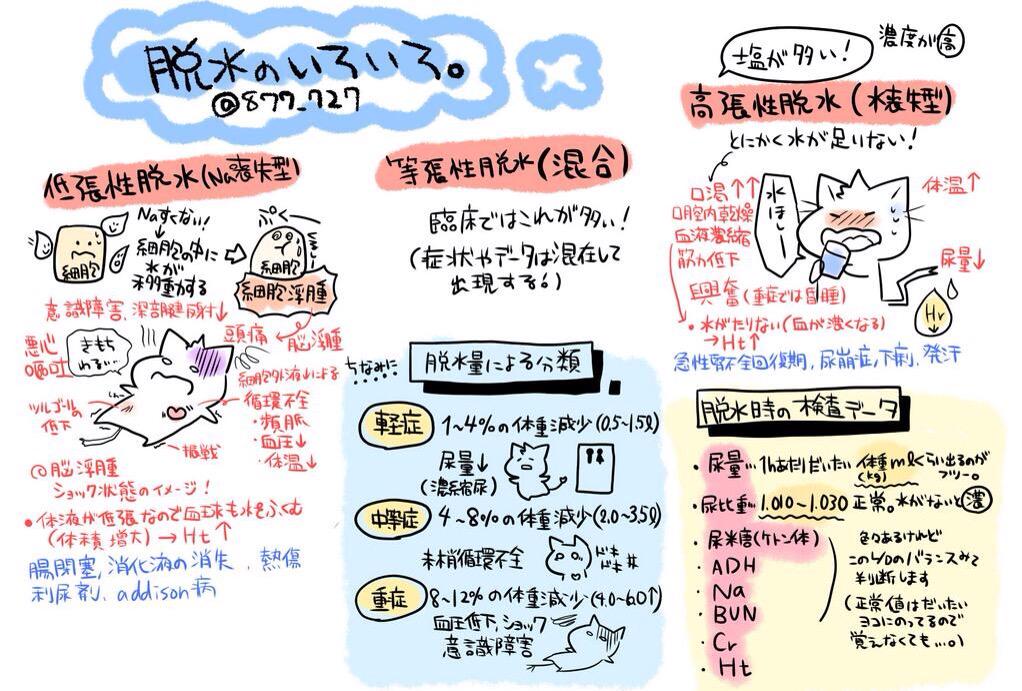 脱水のいろいろ。
@877_727
低張性脱水(Na喪失型)
Naすくない!
細胞の中に
水が
移動する
細胞
ぷくー
細胞
細胞浮腫
意識障害、深部腱反射↓
頭痛
脳浮腫
悪心
嘔吐
きもち
わるい…
ツルゴールの
低下
振戦
細胞外液↓による
循環不全
・頻脈
・血圧↓
・体温↓
◎脳浮腫
ショック状態のイメージ!
・体液が低張なので血球も水をふくむ
(体積増大)→Ht↑
腸閉塞、消化液の消失、熱傷
利尿剤、addison病
等張性脱水(混合)
臨床ではこれが多い!
(症状やデータは混在して
出現する!)
ちなみに
脱水量による分類
軽症
1~4%の体重減少(0.5~1.5ℓ)
尿量↓
(濃縮尿)
中等症
4~8%の体重減少(2.0~3.5ℓ)
末梢循環不全
ドキ
ドキ
重症
8~12%の体重減少(4.0~6.0↑)
血圧低下、ショック
意識障害
塩が多い!
濃度が高
高張性脱水(水喪失型)
とにかく水が足りない!
口渇↑↑
口腔内乾燥
血液濃縮
筋力低下
水ほしー
体温↑
尿量↓
Hr
興奮(重症では昏睡)
・水がたりない(血が濃くなる)
→Ht↑
急性腎不全回復期、尿崩症、下痢、発汗
脱水時の検査データ
・尿量…1hあたりだいたい体重mlくらい出るのが
(kg)
フツー。
・尿比重…1.010~1.030 正常。水がないと濃
・尿糖(ケトン体)
・ADH
・Na
・BUN
・Cr
・Ht
色々あるけれど
このへんのバランスみて
判断します
(正常値はだいたい
ヨコにのってるので
覚えなくても…。)